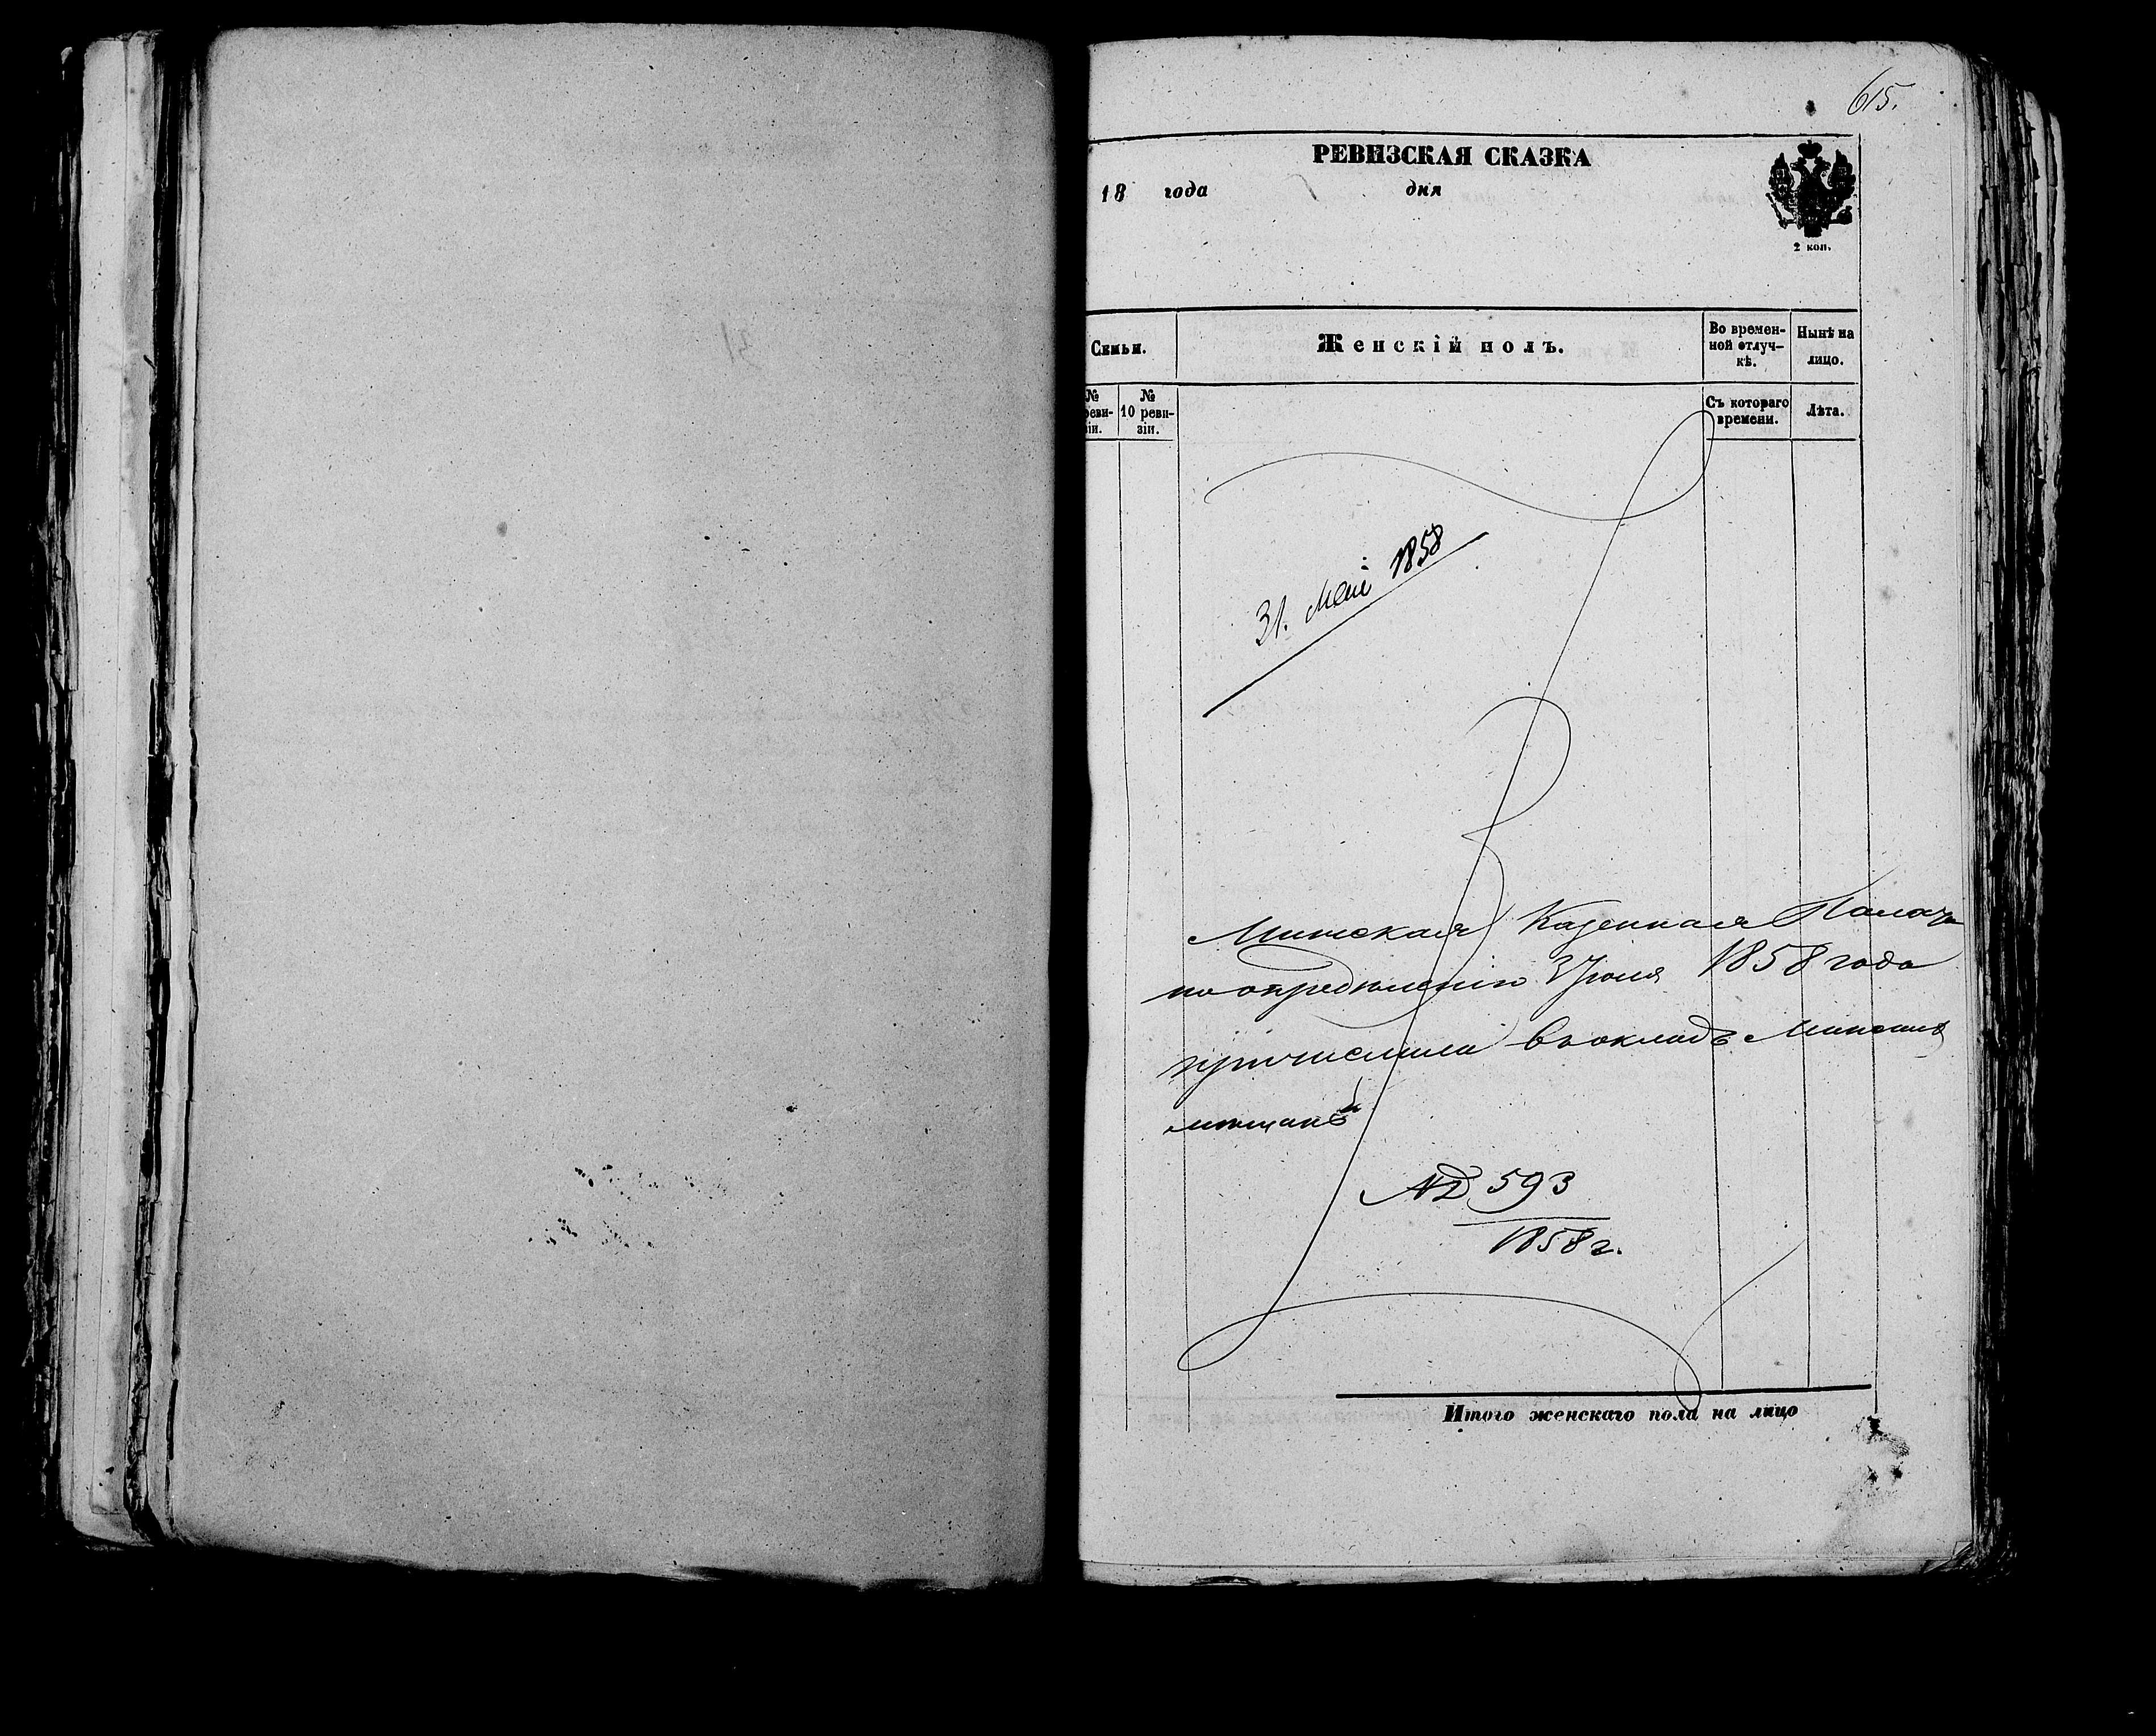 615.
РЕВИЗСКАЯ СКАЗКА
18 года дня
2 коп.
Семьи.
Женскій полъ.
Во времен-
ной отлуч-
кѣ.
Нынѣ на
лицо.
№
реви-
зіи.
№
10 реви-
зіи.
Съ котораго
времени.
Лѣта.
31. Маія 1858
Минская Казенная Палата
по опредѣленію 3 Іюля 1858 года
причислила въ окладъ Минскихъ
мѣщанъ
№ 593
1858 г.
Итого женскаго пола на лицо